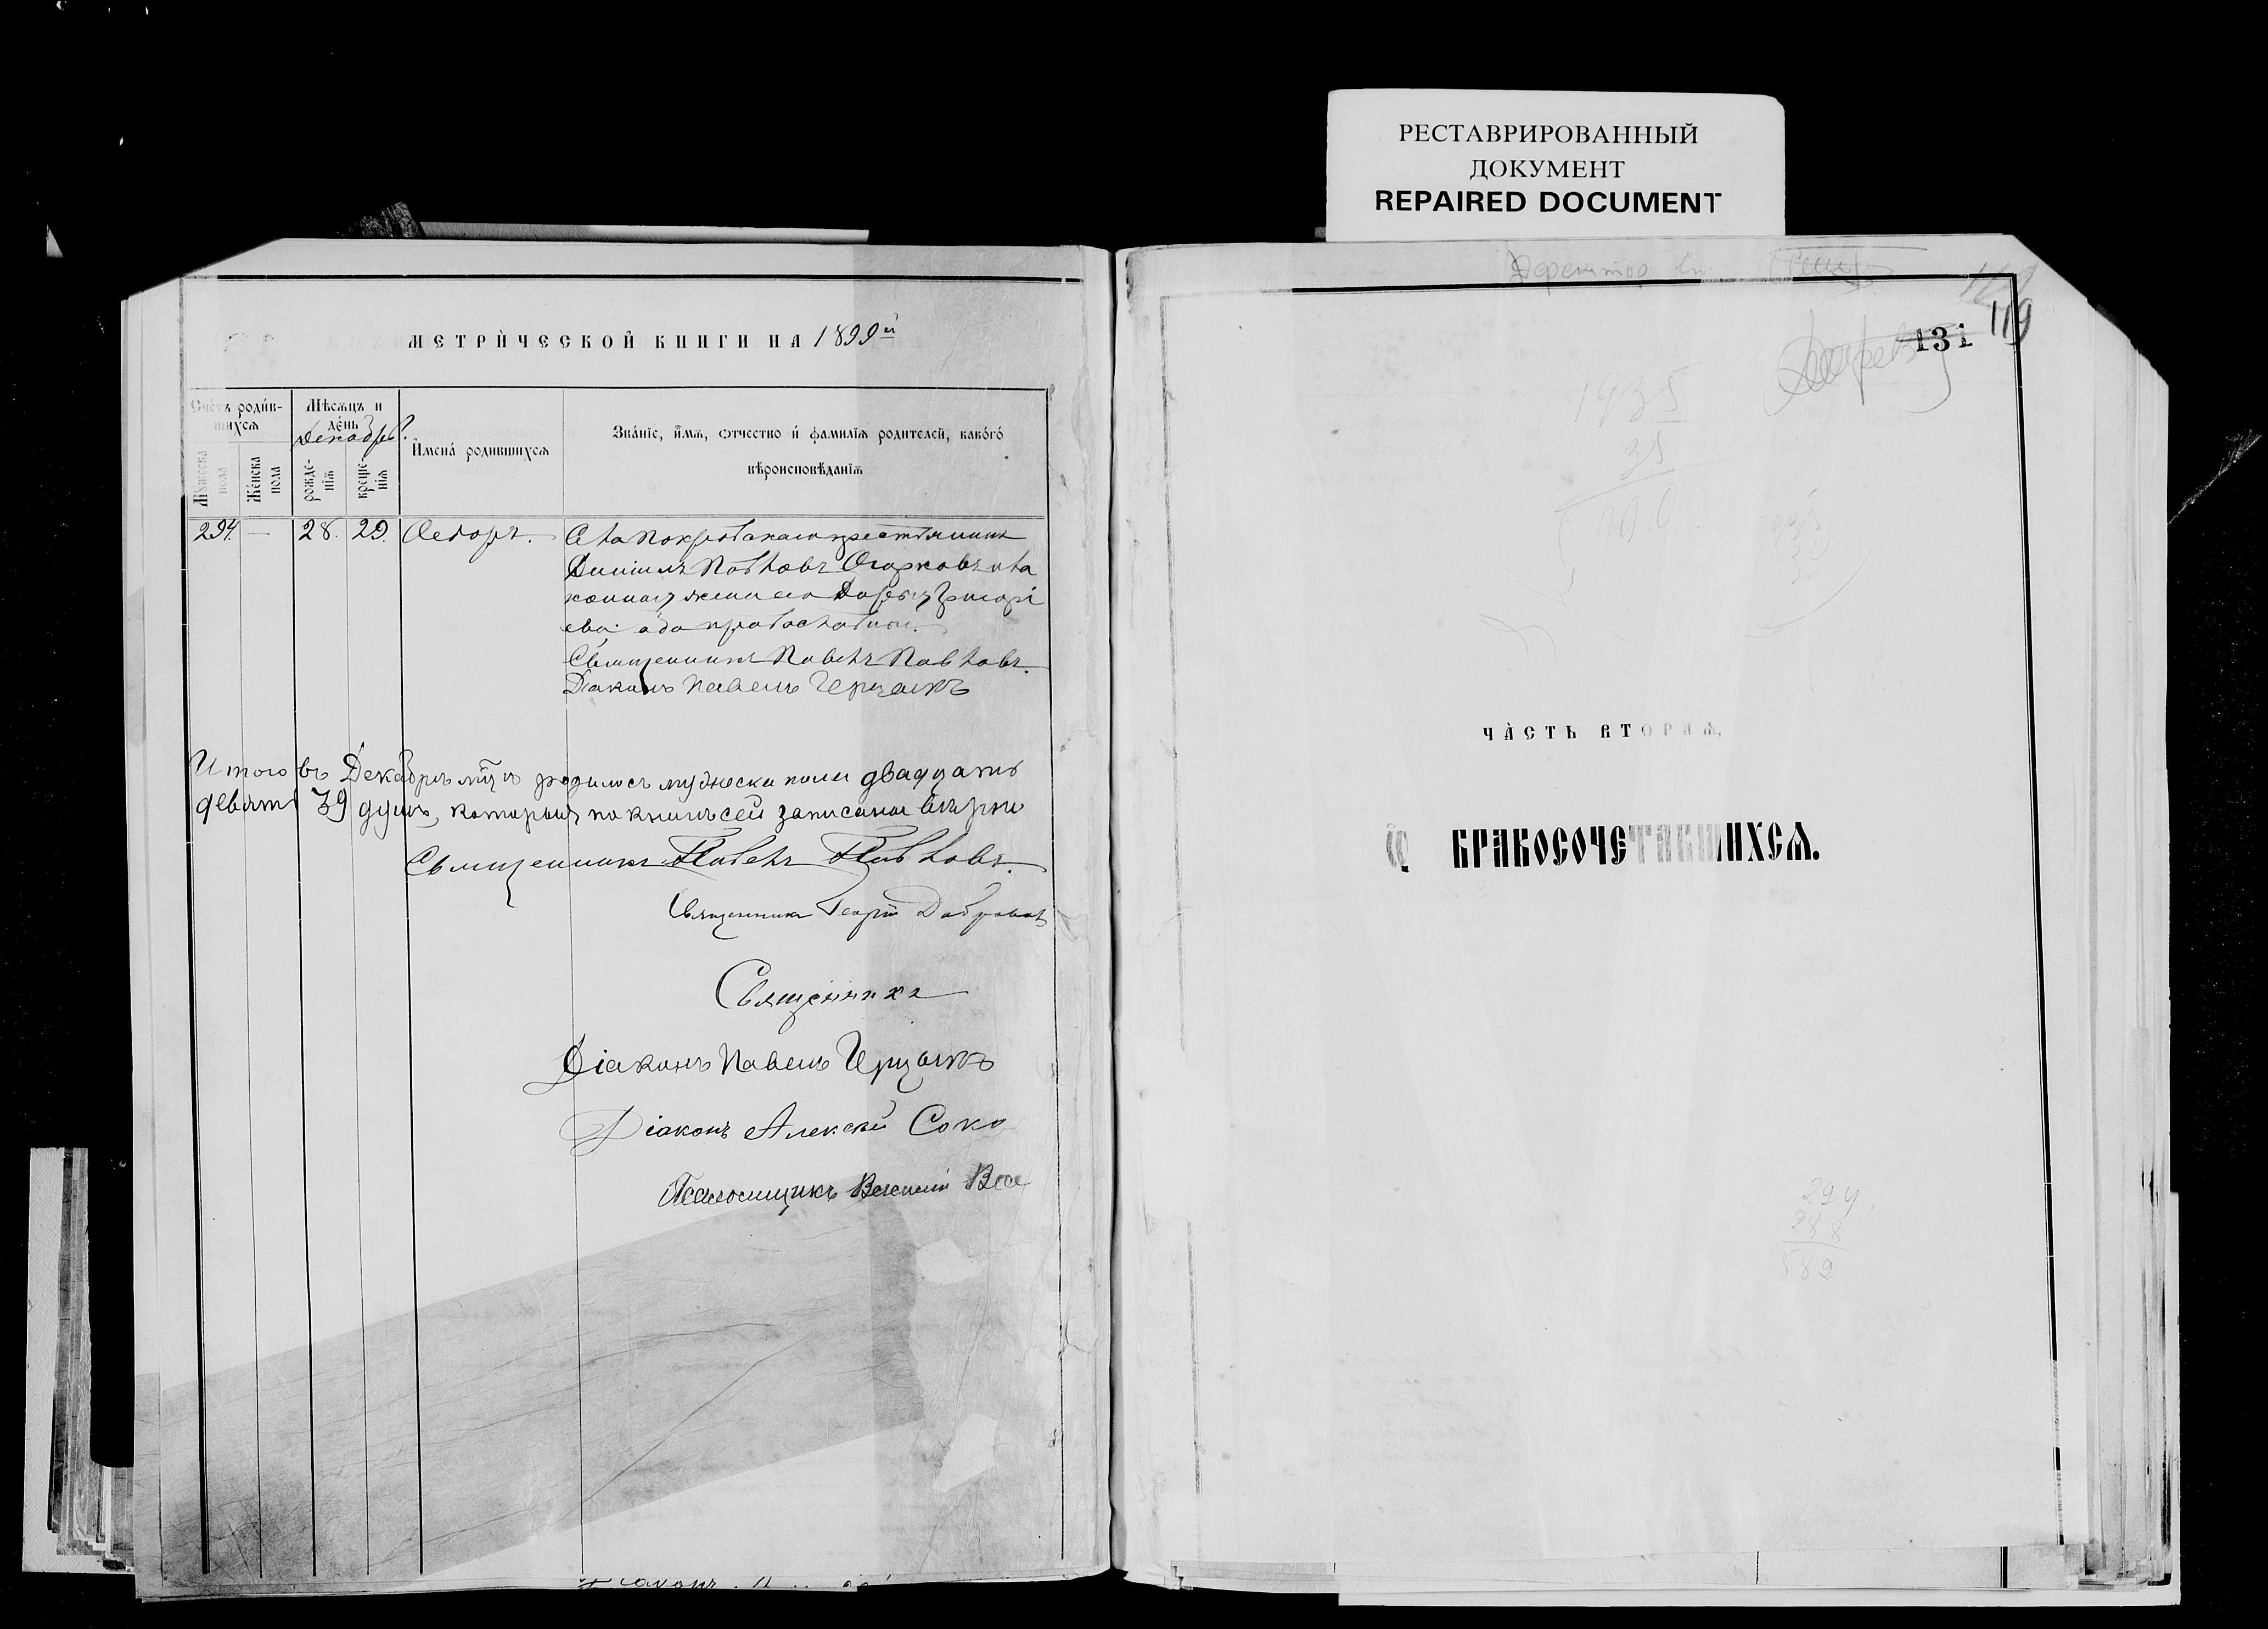 РЕСТАВРИРОВАННЫЙ
ДОКУМЕНТ
REPAIRED DOCUMENT
МЕТРИ́ЧЕСКОЙ КНИГИ НА 1899й
Сче́тъ роди́в-
шихсѧ
Мѣсѧцъ и
де́нь
Декабрь.
Мꙋжеска
пола
Же́нска
пола
рожде-
нїѧ
креще-
нїѧ
Имена́ родившихсѧ
Зва́нїе, и́мѧ, ѻтчество и́ фамилїѧ родителей, како́гѡ
вѣроисповѣданїѧ
294. — 28. 29. Ѳедоръ.
Села Покровскаго крестьянинъ
Даніилъ Павловъ Огарковъ и за
конная жена его Дарья Григорі
ева: оба православные.
Священникъ Павелъ Павловъ.
Діаконъ Павелъ
Итого въ Декабрѣ мцѣ родилось мужеска пола двадцать
девять 39 душъ, которыя по книгѣ сей записаны вѣрно
Священникъ Павелъ Павловъ.
Священникъ Георгій
Священникъ
Діаконъ Павелъ
Діаконъ Алексѣй Соко
Псаломщикъ Василій Все
119
131
1935
35
ЧА́СТЬ ВТОРАѦ,
Ѽ БРАКОСОЧЕТАВШИХСѦ.
294
288
582